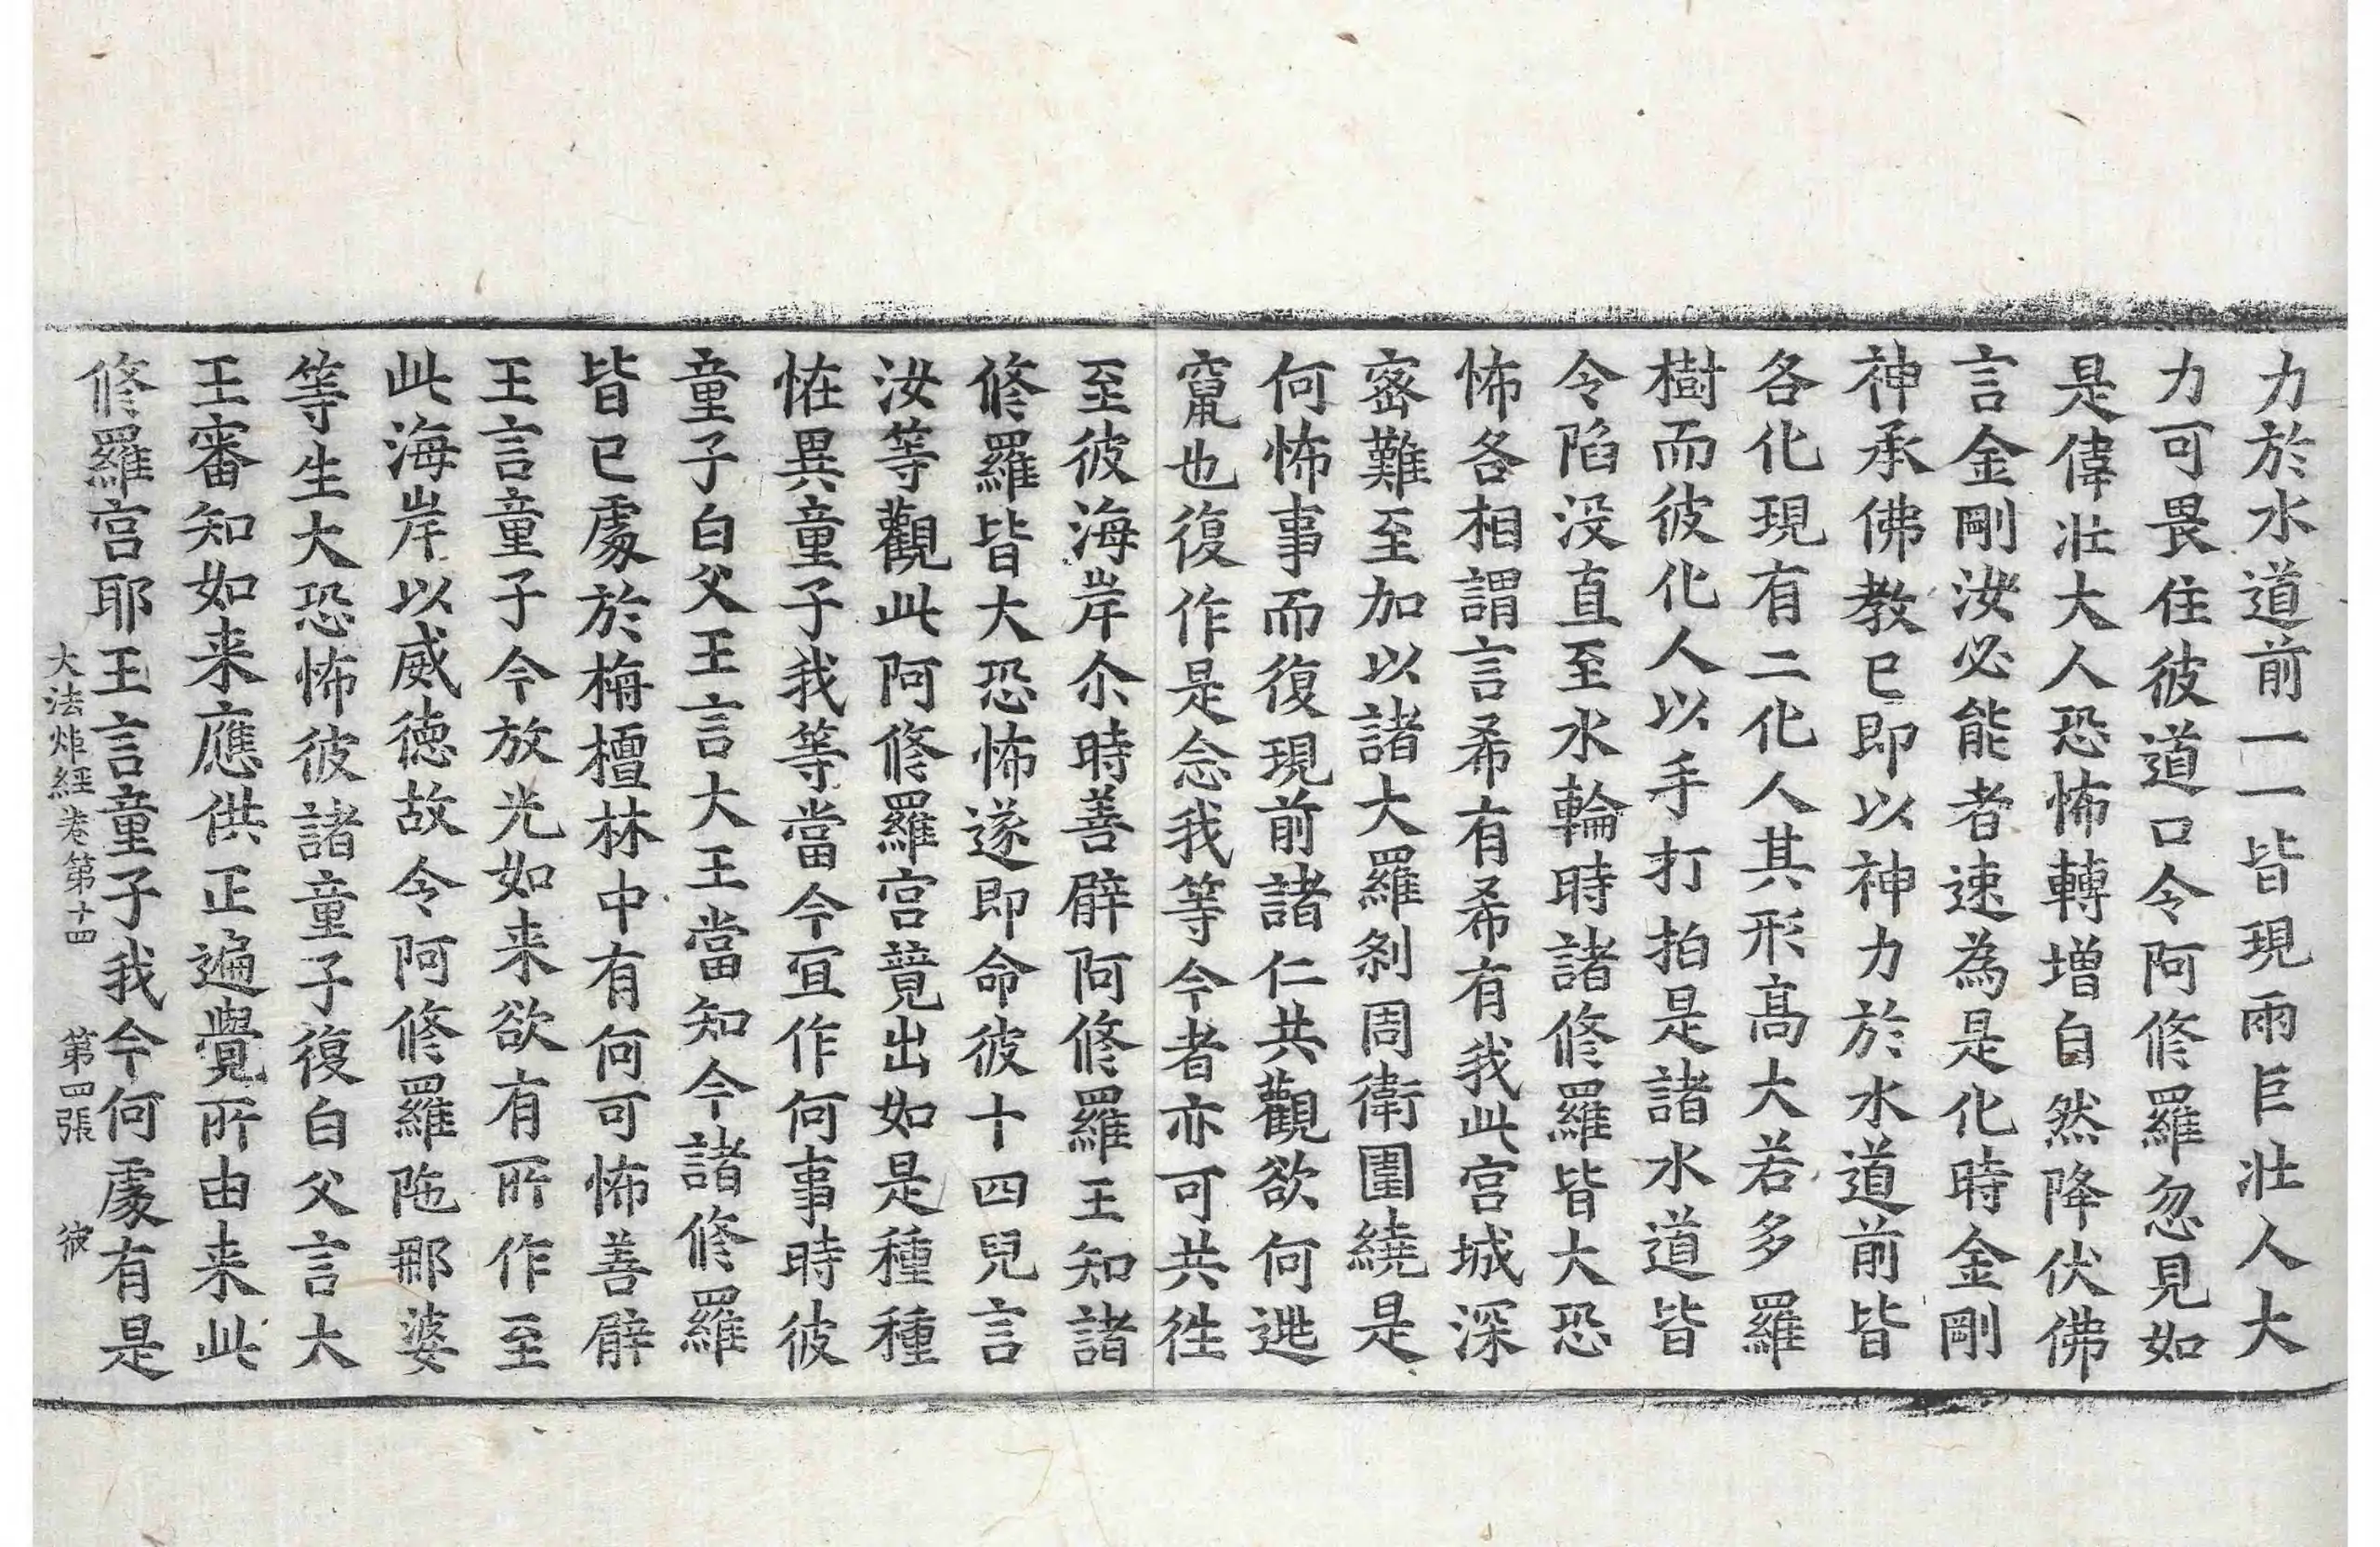 力於水道前一一皆現兩巨壯人大
力可畏住彼道口令阿修羅忽見如
是偉壯大人恐怖轉增自然降伏佛
言金剛汝必能者速為是化時金剛
神承佛教已即以神力於水道前皆
各化現有二化人其形高大若多羅
樹而彼化人以手打拍是諸水道皆
令陷没直至水輪時諸修羅皆大恐
怖各相謂言希有希有我此宮城深
宻難至加以諸大羅剎周衛圍繞是
何怖事而復現前諸仁共觀欲何逃
竄也復作是念我等今者亦可共往
至彼海岸尒時善臂阿修羅王知諸
修羅皆大恐怖遂即命彼十四兒言
汝等觀此阿修羅宮竟出如是種種
恠異童子我等當今宜作何事時彼
童子白父王言大王當知今諸修羅
皆已處於栴檀林中有何可怖善臂
王言童子今放光如来欲有所作至
此海岸以威徳故令阿修羅陁那婆
等生大恐怖彼諸童子復白父言大
王審知如来應供正遍覺所由来此
修羅宮耶王言童子我今何處有是
大法炬經卷第十四 第四張 彼